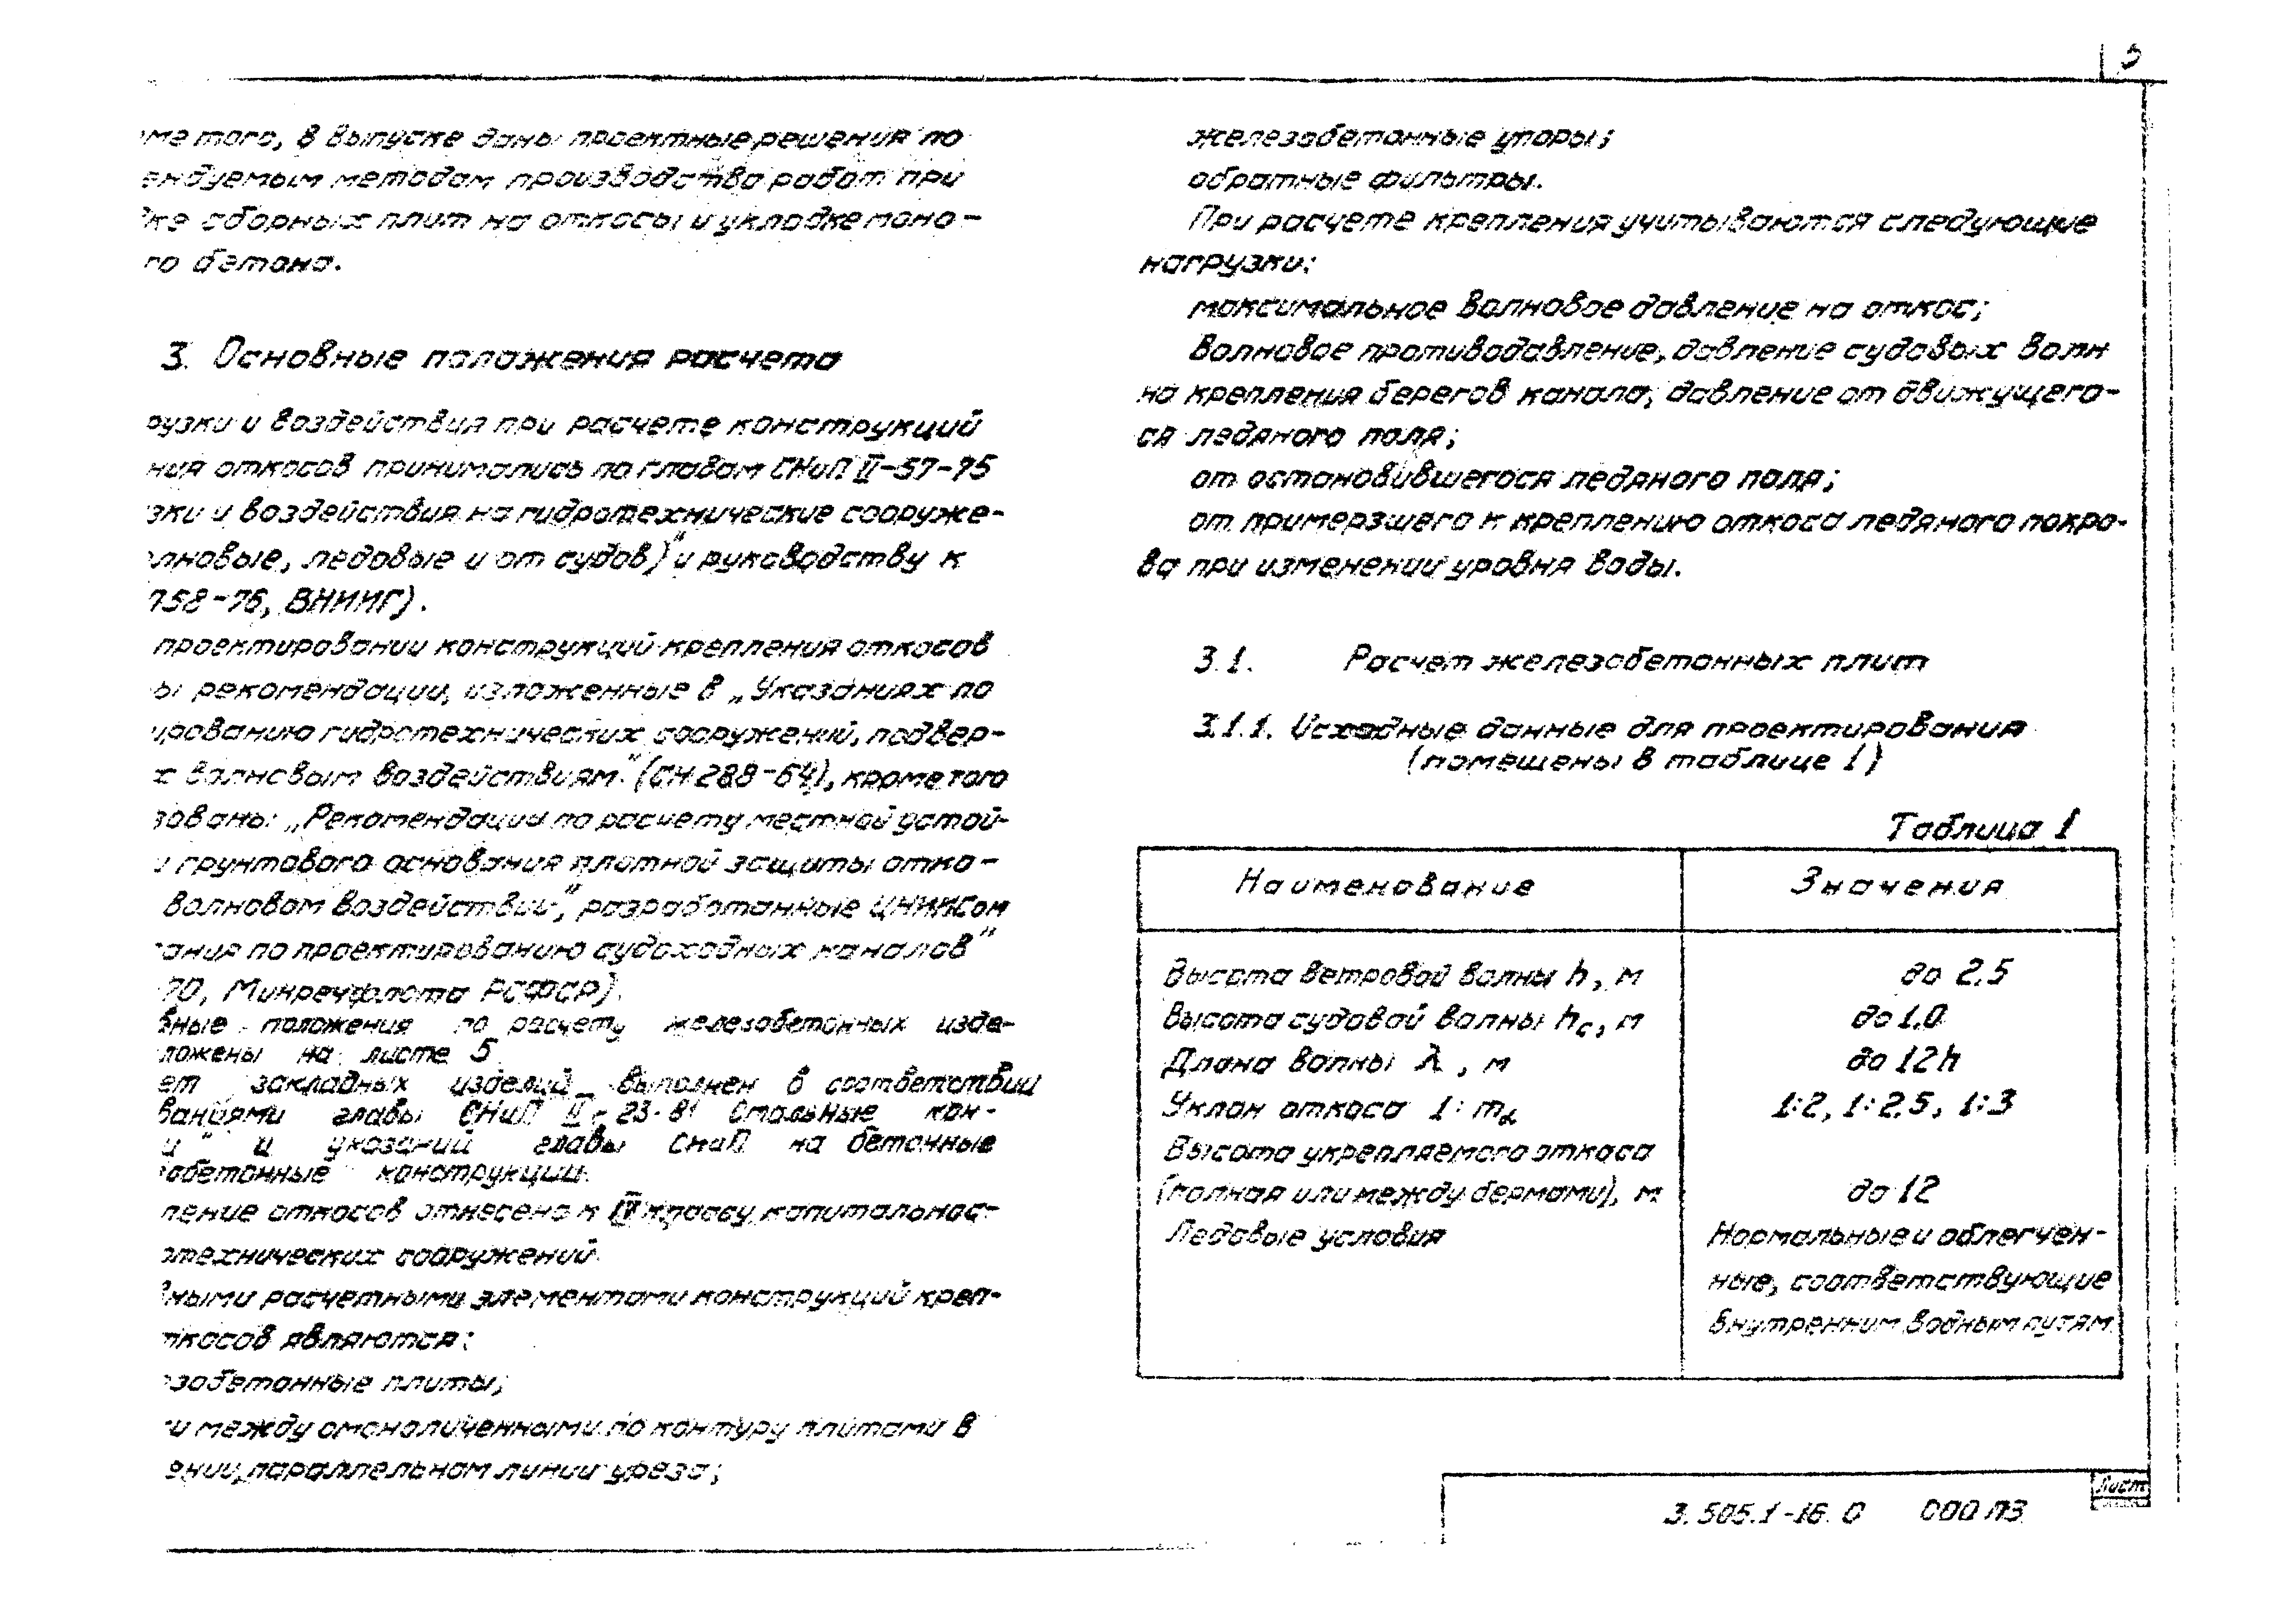 5
ме того, в выпуске даны проектные решения по
ендуемым методам производства работ при
ке сборных плит на откосы и укладке моно-
го бетона.
3. Основные положения расчета
рузки и воздействия при расчете конструкций
ния откосов принимались по главам СНиП II-57-75
зки и воздействия на гидротехнические сооруже-
лновые, ледовые и от судов)" и руководству к
П58-76, ВНИИГ).
проектировании конструкций крепления откосов
ы рекомендации, изложенные в „Указаниях по
ированию гидротехнических сооружений, подвер-
х волновым воздействиям" (СН 288-64), кроме того
зованы: „Рекомендации по расчету местной устой-
и грунтового основания плитной защиты отко-
волновом воздействии", разработанные ЦНИИСом
ания по проектированию судоходных каналов"
70, Минречфлота РСФСР).
вные положения по расчету железобетонных изде-
ложены на листе 5
ет закладных изделий выполнен в соответствии
ваниями главы СНиП II-23-81 Стальные кон-
и" и указаний главы СНиП на бетонные
обетонные конструкции.
ление откосов отнесено к IV классу капитальнос-
отехнических сооружений.
ными расчетными элементами конструкций креп-
ткосов являются:
зобетонные плиты;
и между омоноличенными по контуру плитами в
ении, параллельном линии уреза;
железобетонные упоры;
обратные фильтры.
При расчете крепления учитываются следующие
нагрузки:
максимальное волновое давление на откос;
волновое противодавление, давление судовых волн
на крепления берегов канала, давление от движущего-
ся ледяного поля;
от остановившегося ледяного поля;
от примерзшего к креплению откоса ледяного покро-
ва при изменении уровня воды.
3.1. Расчет железобетонных плит
3.1.1. Исходные данные для проектирования
(помещены в таблице 1)
Таблица 1
Наименование Значения
Высота ветровой волны h, м до 2.5
Высота судовой волны hс, м до 1.0
Длина волны λ, м до 12h
Уклон откоса 1:mα 1:2, 1:2.5, 1:3
Высота укрепляемого откоса
(полная или между бермами), м до 12
Ледовые условия Нормальные и облегчен-
ные, соответствующие
внутренним водным путям
3.505.1-16. 0 000 ПЗ
Лист